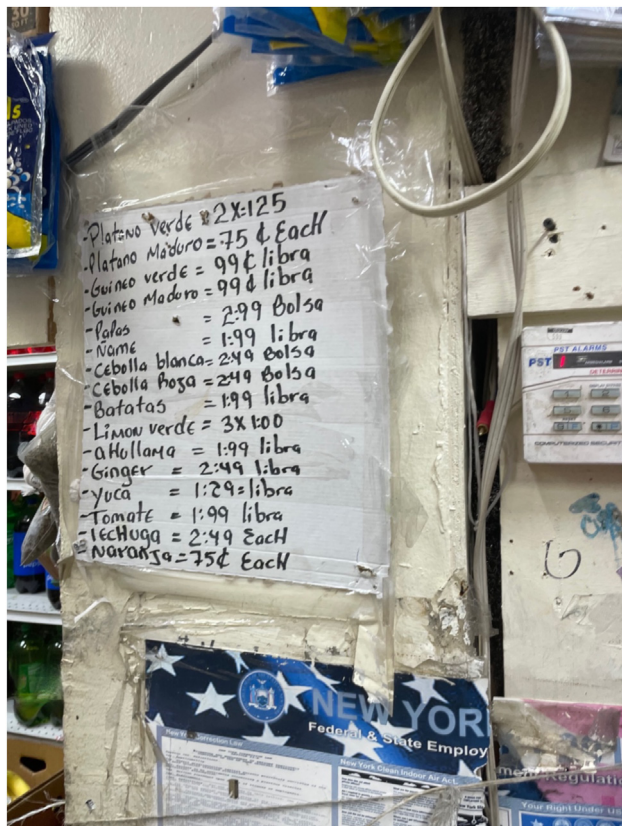 -Platano verde = 2x:125
-Platano Maduro = .75 ¢ Each
-Guineo verde = 99¢ libra
-Guineo Maduro = 99¢ libra
-Papas = 2:99 Bolsa
-Name = 1:99 libra
-Cebolla blanca = 2:49 Bolsa
-Cebolla Roza = 2:49 Bolsa
-Batatas = 1:99 libra
-Limon verde = 3x1:00
-aHullama = 1:99 libra
-Ginger = 2:49 libra
-yuca = 1:29 = libra
-Tomate = 1:99 libra
-lechuga = 2:49 Each
-Naranja = 75¢ Each
PST ALARMS
PST
NEW YOR
Federal & State Employ
New York Clean Indoor Air Act.
Regulati
Your Right Under US